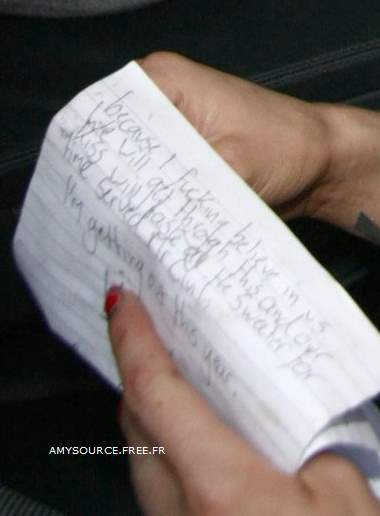 because I fucking believe in us
We will get through this and our
kiss will taste all the sweeter for
time served
I'm getting out this year.
AMYSOURCE.FREE.FR